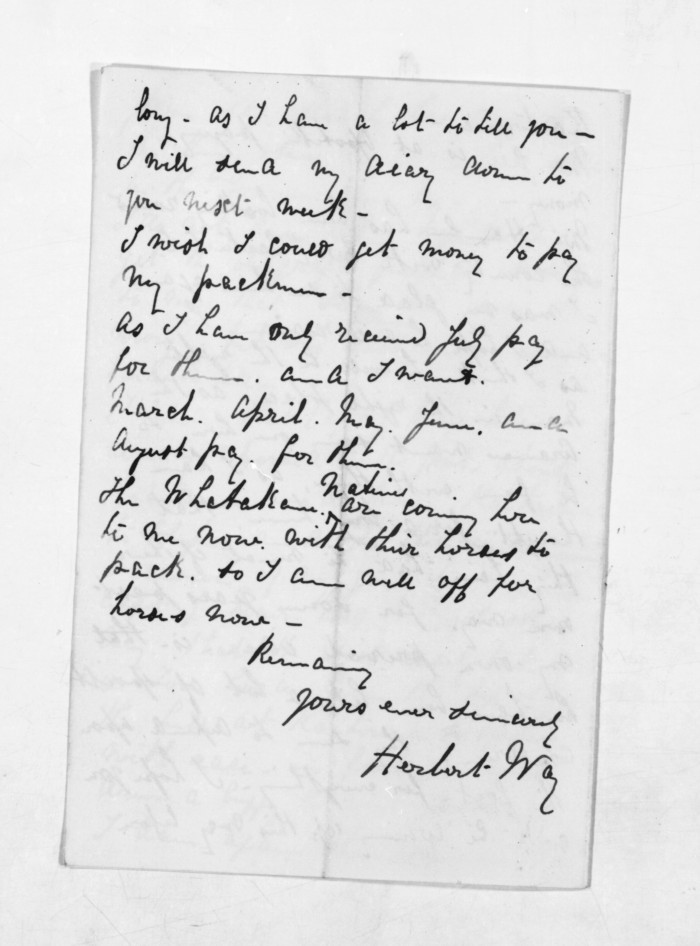 long - as I have a lot to tell you -
I will send my diary down to
you next week -
I wish I could get money to pay
my packmen -
as I have only received July pay
for them. and I want.
March. April. May. June. and
August pay. for them.
The Whatakane. Natives are coming here
to me now. with their horses to
pack. so I am well off for
horses now -
Remaining
yours ever sincerely
Herbert Way